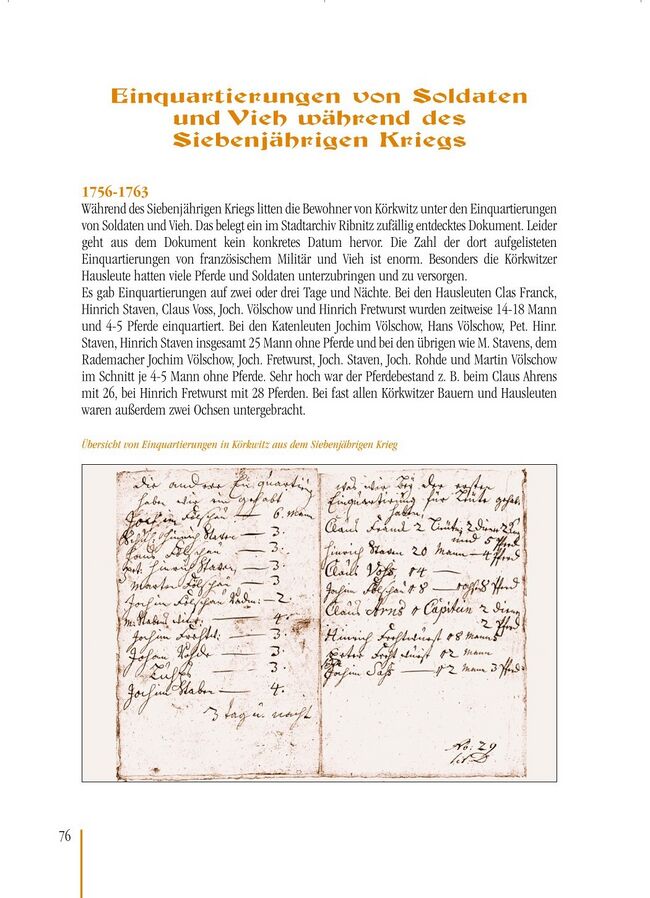 Einquartierungen von Soldaten
und Vieh während des
Siebenjährigen Kriegs
1756-1763
Während des Siebenjährigen Kriegs litten die Bewohner von Körkwitz unter den Einquartierungen
von Soldaten und Vieh. Das belegt ein im Stadtarchiv Ribnitz zufällig entdecktes Dokument. Leider
geht aus dem Dokument kein konkretes Datum hervor. Die Zahl der dort aufgelisteten
Einquartierungen von französischem Militär und Vieh ist enorm. Besonders die Körkwitzer
Hausleute hatten viele Pferde und Soldaten unterzubringen und zu versorgen.
Es gab Einquartierungen auf zwei oder drei Tage und Nächte. Bei den Hausleuten Clas Franck,
Hinrich Staven, Claus Voss, Joch. Völschow und Hinrich Fretwurst wurden zeitweise 14-18 Mann
und 4-5 Pferde einquartiert. Bei den Katenleuten Jochim Völschow, Hans Völschow, Pet. Hinr.
Staven, Hinrich Staven insgesamt 25 Mann ohne Pferde und bei den übrigen wie M. Stavens, dem
Rademacher Jochim Völschow, Joch. Fretwurst, Joch. Staven, Joch. Rohde und Martin Völschow
im Schnitt je 4-5 Mann ohne Pferde. Sehr hoch war der Pferdebestand z. B. beim Claus Ahrens
mit 26, bei Hinrich Fretwurst mit 28 Pferden. Bei fast allen Körkwitzer Bauern und Hausleuten
waren außerdem zwei Ochsen untergebracht.
Übersicht von Einquartierungen in Körkwitz aus dem Siebenjährigen Krieg
die andere
haben wir gehabt
Jochim — 6. Mann
Hinrich — 3.
— 3.
Hinrich Staven — 3.
— 3.
Jochim — 2
— 4.
Jochim — 3.
Johan Rohde — 3.
— 3.
Jochim Staben — 4.
3 tag u. nacht
was wir bey der ersten
Einquartierung für Leute gehabt
haben
Claus 2
und 5 Pferd
Hinrich Staven 20 Mann — 4 Pferd
Claus Voss 14 —
Jochim 18 — 8 Pferd
Claus Capitein 2
2 Pferd
Hinrich 18 Mann
Peter 12 Mann
Jochim Sass — 12 Mann 3 Pferd
No. 29